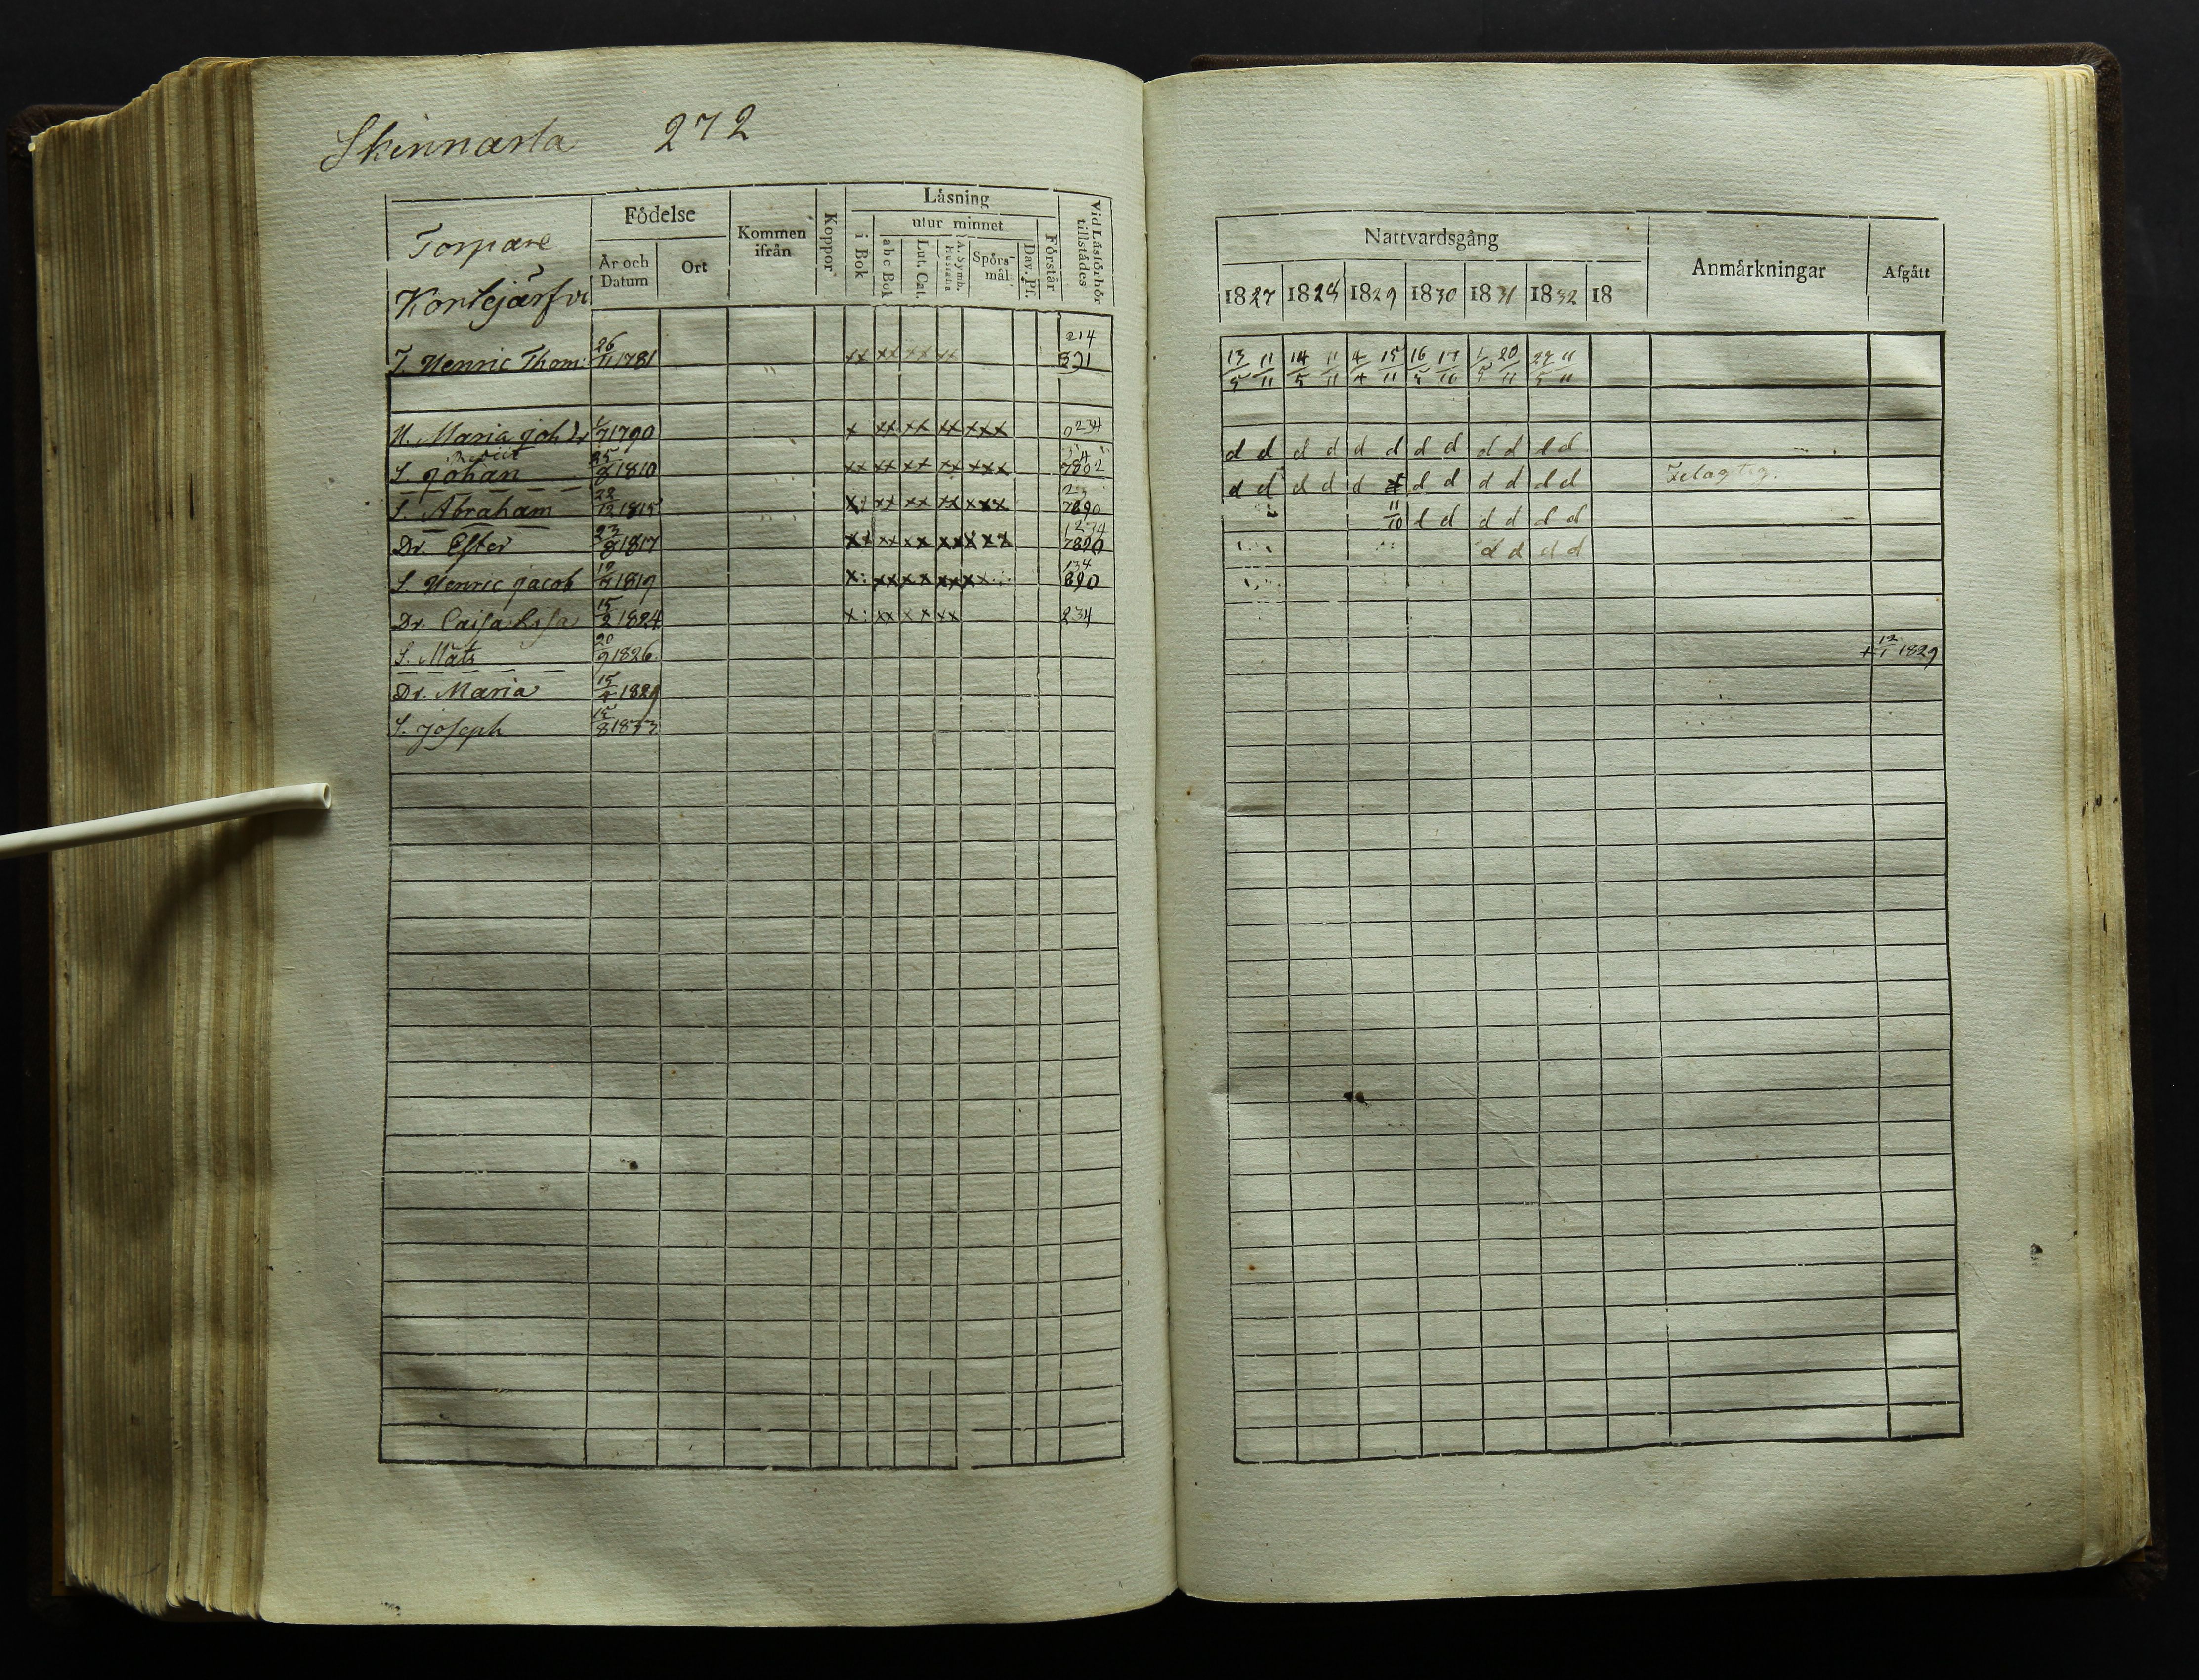 Skinnarla 272
Torpare
Kortejärfvi
Födelse
År och Datum
Ort
Kommen ifrån
Koppor
Läsning
i Bok
utur minnet
abc Bok
Lut. Cat.
A. Symb. Hustafla
Spörs-mål
Dav. Ps.
Förstår
Vid Läsförhör tillstädes
Nattvardsgång
1827 1828 1829 1830 1831 1832 18
Anmärkningar
Afgått
T. Henric Thom: 26/11 1781 xx xx xx xx 214 821 13/5 11/11 14/5 11/11 4/4 15/11 16/5 17/10 1/5 20/11 27/5 11/11
H. Maria Joh Dr 1/7 1790 x xx xx xx xxx 0234 d d d d d d d d d d d d
S. Johan 25/8 1810 xx xx xx xx xxx 7802 d d d d d d d d d d d d
S. Abraham 28/12 1815 xx xx xx xxx 7890 11/10 l d d d d d
Dr. Ester 23/8 1817 xx xx xx xx xxx 1234 7890 d d d d
S. Henric Jacob 19/7 1819 x: xx xx xx 134 890
Dr. Caisa Lisa 15/2 1824 x: xx xx xx 234
S. Mats 20/9 1826. + 12/1 1829
Dr. Maria 15/4 1829
S. Joseph 15/8 1833